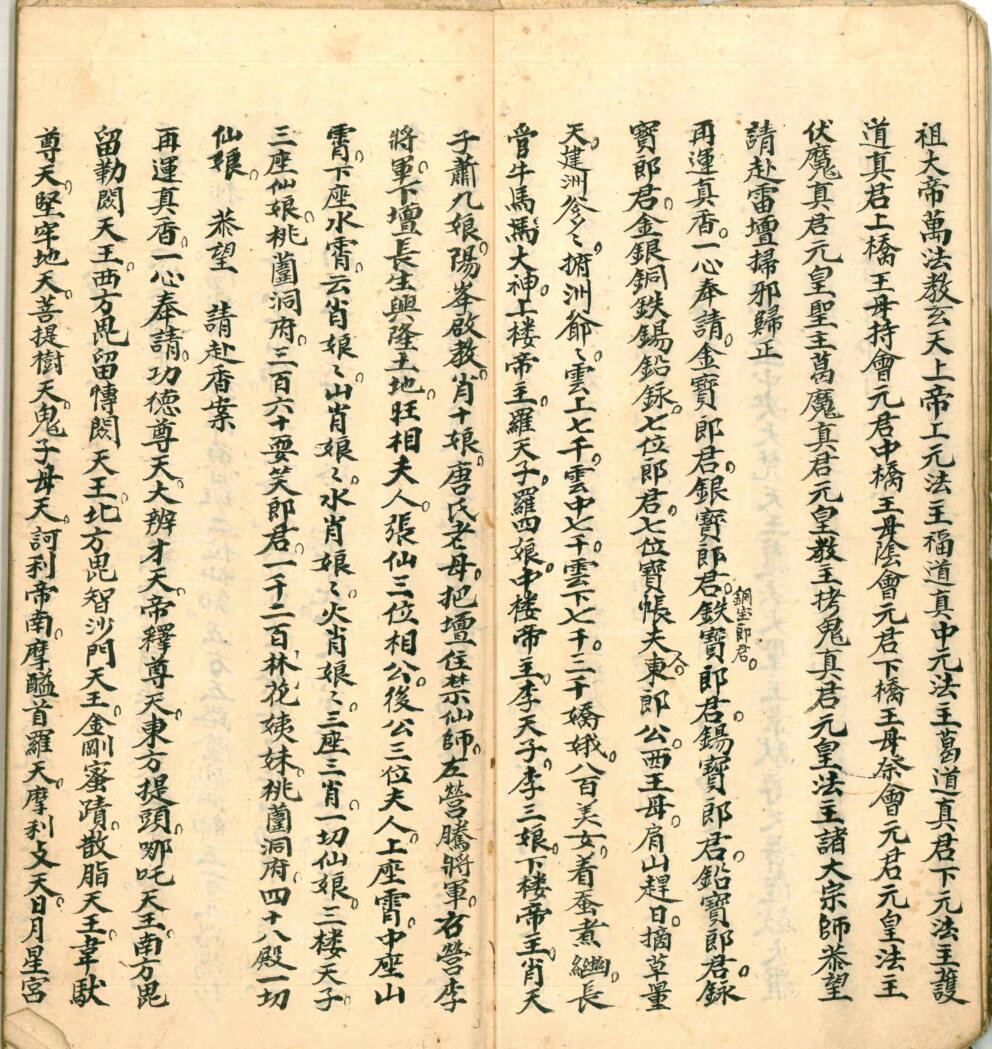 祖大帝萬法教玄天上帝上元法主福道真中元法主葛道真君下元法主護
道真君上橋王母持會元君中橋王母陰會元君下橋王母癸會元君元皇法王
伏魔真君元皇聖主萬魔真君元皇教主拷鬼真君元皇法主諸大宗師恭望
請赴雷壇掃邪歸正
再運真香一心奉請金寶郎君銀寶郎君銅宝郎君鉄寶郎君錫寶郎君鉛寶郎君銾
寶郎君金銀銅鉄錫鉛銾七位郎君七位寶帳夫人東郎公西王母肩山趕日摘草量
天建洲爹〻捬洲爺〻雲上七千雲中七千雲下七千二千嬌娥八百美女着蚕煮繭長
管牛馬馬大神上楼帝主羅天子羅四娘中楼帝主李天子李三娘下楼帝主肖天
子蕭九娘陽峯啟教肖十娘唐氏老母把壇住禁仙師左營騰將軍右營李
將軍下壇長生興隆土地旺相夫人張仙三位相公後公三位夫人上座霄中座山
霄下座水霄云肖娘〻山肖娘〻水肖娘〻火肖娘〻三座三肖一切仙娘三楼天子
三座仙娘桃薗洞府三百六十耍笑郎君一千二百林花姨妹桃薗洞府四十八殿一切
仙娘 恭望 請赴香案
再運真香一心奉請功德尊天大辨才天帝釋尊天東方提頭哪吒天王南方毘
留勒閦天王西方毘留愽閦天王北方毘智沙門天王金剛蜜蹟散脂天王韋馱
尊天堅牢地天菩提樹天鬼子母天訶利帝南摩醯首羅天摩利支天日月星宮